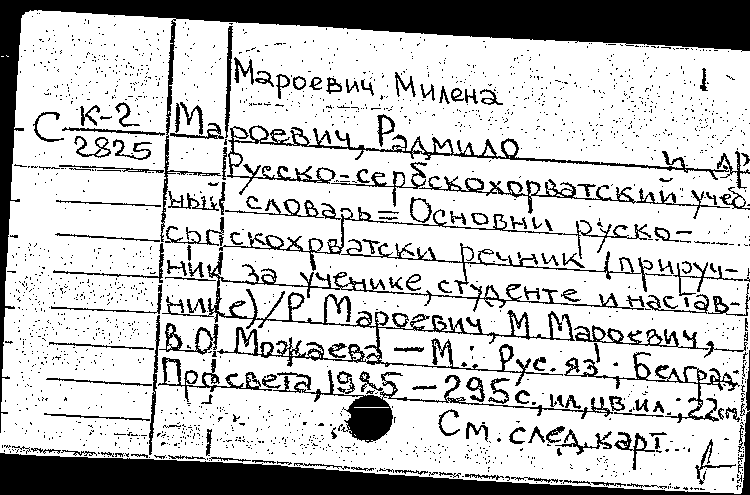 Мароевич, Милена 1
С К-2/2825 Мароевич, Радмило и др
Русско-сербскохорватский учеб-
ный словарь = Основни руско-
српскохрватски речник (прируч-
ник за ученике, студенте и настав-
нике) / Р. Мароевич, М. Мароевич,
В.О. Можаева. — М.: Рус. яз.; Белград:
Просвета, 1985 — 295 с., ил, цв. ил.; 22 см
См. след. карт...